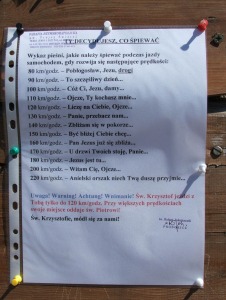 TY DECYDUJESZ, CO ŚPIEWAĆ
Wykaz pieśni, jakie należy śpiewać podczas jazdy
samochodem, gdy rozwija się następujące prędkości:
80 km/godz. – Pobłogosław, Jezu, drogi
90 km/godz. – To szczęśliwy dzień...
100 km/godz. – Cóż Ci, Jezu, damy...
110 km/godz. – Ojcze, Ty kochasz mnie...
120 km/godz. – Liczę na Ciebie, Ojcze...
130 km/godz. – Panie, przebacz nam...
140 km/godz. – Zbliżam się w pokorze...
150 km/godz. – Być bliżej Ciebie chcę...
160 km/godz. – Pan Jezus już się zbliża...
170 km/godz. – U drzwi Twoich stoję, Panie...
180 km/godz. – Jezus jest tu...
200 km/godz. – Witam Cię, Ojcze...
220 km/godz. – Anielski orszak niech Twą duszę przyjmie...
Uwaga! Warning! Achtung! Wnimanie! Św. Krzysztof jedzie z
Tobą tylko do 120 km/godz. Przy większych prędkościach
swoje miejsce oddaje św. Piotrowi!
Św. Krzysztofie, módl się za nami!